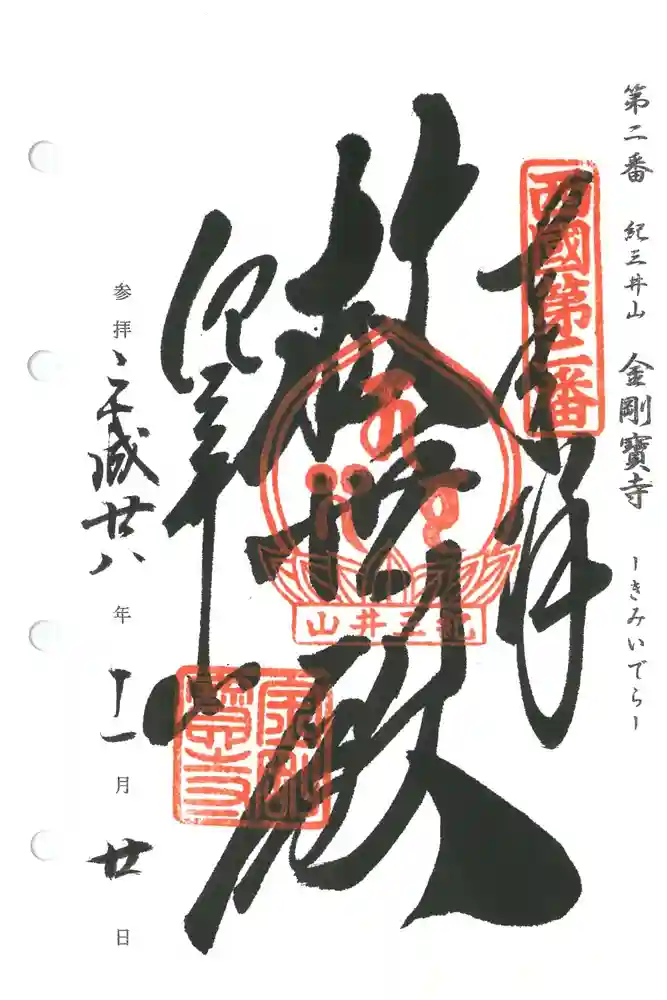 第二番 紀三井山 金剛寶寺 ーきみいでらー
西國第二番
奉拝
救世殿
紀三井山
紀三井寺
金剛寶寺
参拝 平成廿八年十一月廿日